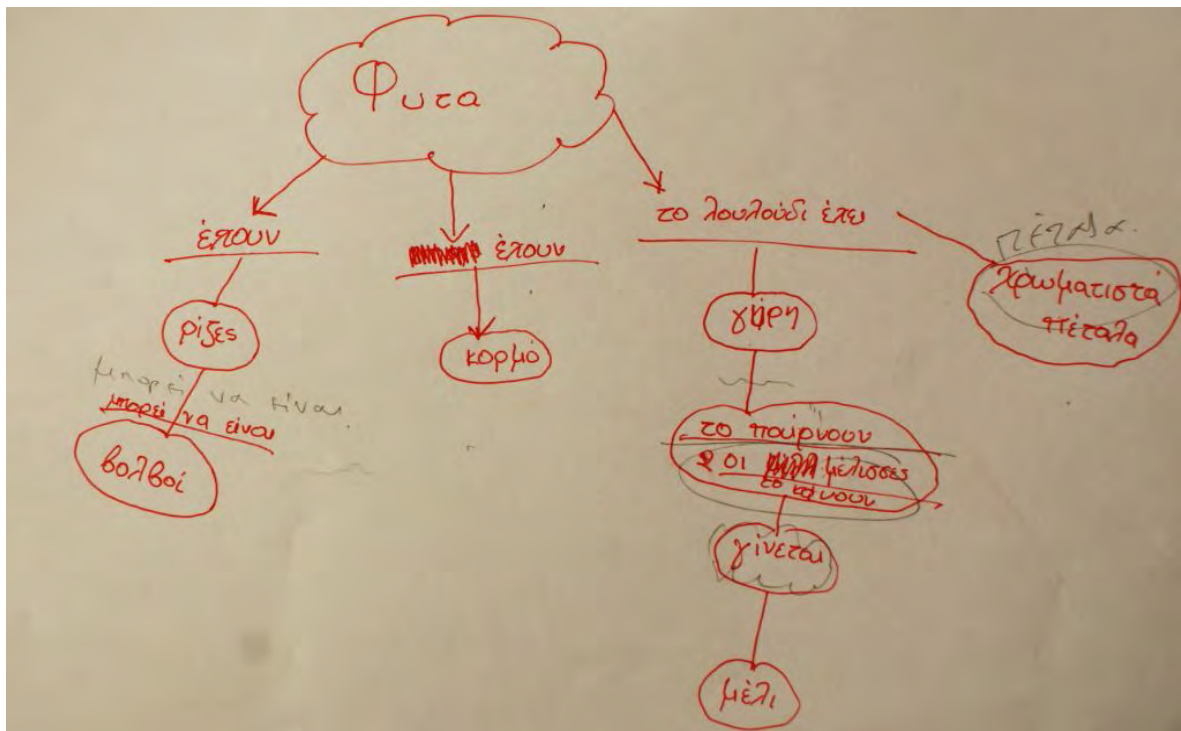 Φυτα
έπουν
ρίζες
μπορεί να είναι
μπορεί να είναι
βολβοί
έπουν
κορμό
το λουλούδι έπει
γύρη
το παίρνουν
οι μέλισσες
το κάνουν
γίνεται
μέλι
πέταλα.
Χρωματιστά
πέταλα